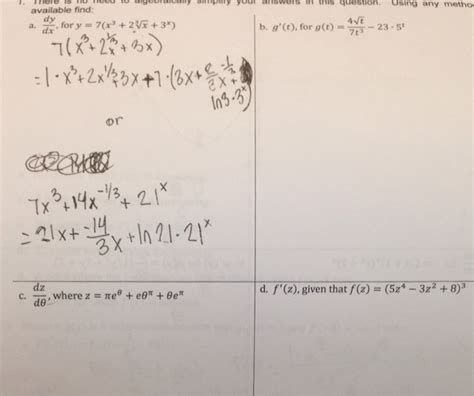 1. There is no need to algebraically simplify your answers in this question. Using any metho
available find:
a. dy/dx, for y = 7(x³ + 2∛x + 3ˣ)
7(x³ + 2x^1/3 + 3x)
= 1·x³ + 2x^1/3 + 3x + 7·(3x + 2/3 x^-1/3 +
ln3·3ˣ)
or
7x³ + 14x^-1/3 + 21ˣ
= 21x + -14/3x + ln21·21ˣ
b. g'(t), for g(t) = 4√t/7t³ − 23·5ᵗ
c. dz/dθ, where z = πe^θ + eθ^π + θe^π
d. f'(z), given that f(z) = (5z⁴ − 3z² + 8)³